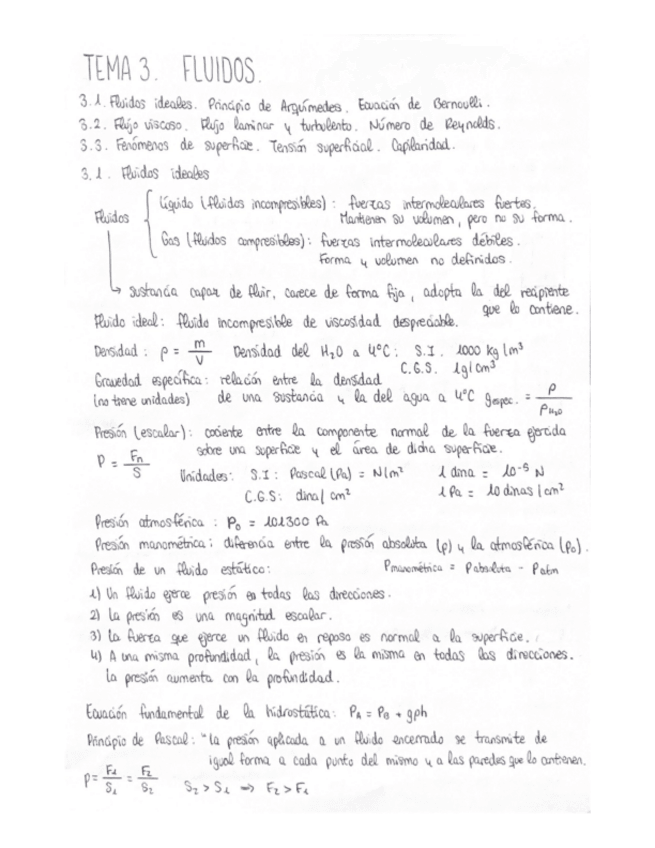 TEMA 3. FLUIDOS.
3.1. Fluidos ideales. Principio de Arquímedes. Ecuación de Bernoulli.
3.2. Flujo viscoso. Flujo laminar y turbulento. Número de Reynolds.
3.3. Fenómenos de superficie. Tensión superficial. Capilaridad.
3.1. Fluidos ideales
Fluidos
Líquido (fluidos incompresibles): fuerzas intermoleculares fuertes.
Mantienen su volumen, pero no su forma.
Gas (fluidos compresibles): fuerzas intermoleculares débiles.
Forma y volumen no definidos.
↳ sustancia capaz de fluir, carece de forma fija, adopta la del recipiente
que lo contiene.
Fluido ideal: fluido incompresible de viscosidad despreciable.
Densidad: ρ = m/V Densidad del H₂O a 4°C: S.I. 1000 kg/m³
C.G.S. 1g/cm³
Gravedad específica: relación entre la densidad
(no tiene unidades) de una sustancia y la del agua a 4°C g espec. = ρ/ρH₂O
Presión (escalar): cociente entre la componente normal de la fuerza ejercida
sobre una superficie y el área de dicha superficie.
P = Fn/S
Unidades: S.I: Pascal (Pa) = N/m² 1 dina = 10⁻⁵ N
C.G.S: dina/cm² 1 Pa = 10 dinas/cm²
Presión atmosférica: P₀ = 101300 Pa
Presión manométrica: diferencia entre la presión absoluta (p) y la atmosférica (p₀).
Presión de un fluido estático: Pmanométrica = Pabsoluta - Patm
1) Un fluido ejerce presión en todas las direcciones.
2) La presión es una magnitud escalar.
3) La fuerza que ejerce un fluido en reposo es normal a la superficie.
4) A una misma profundidad, la presión es la misma en todas las direcciones.
La presión aumenta con la profundidad.
Ecuación fundamental de la hidrostática: PA = PB + gρh
Principio de Pascal: "la presión aplicada a un fluido encerrado se transmite de
igual forma a cada punto del mismo y a las paredes que lo contienen.
P = F₁/S₁ = F₂/S₂ S₂ > S₁ ⇒ F₂ > F₁